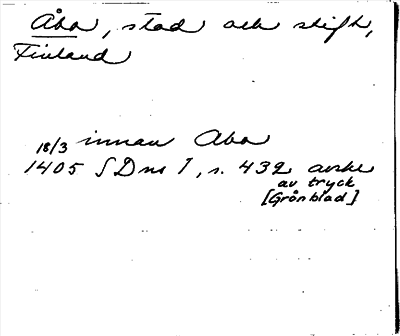 Åbo, stad och stift,
Finland
18/3 innan Abo
1405 SDns 1, s. 432 avskr
av tryck
[Grönblad]